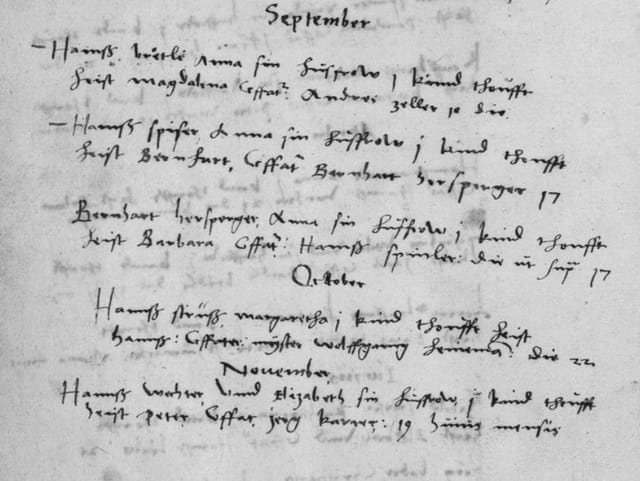 September
– Hannß brötle Anna sin hußfrow j kind thoufft
heist magdalena Gffatr: Andres zeller 10 die
– Hannß spiser, Anna sin hußfrow j kind thoufft
heist Bernhart, Gffatr Bernhart hersperger 17
Bernhart hersperger, Anna sin hußfrow j kind thoufft
heist Barbara Gffatr: Hannß spinler: die ut sup 17
October
Hannß strüß, margaretha j kind thoufft heist
hannß: Gffater: myster wolffgang heinema: die 22
November
Hannß wechter, Vnnd Elizabeth sin hußfrow, j kind thoufft
heist peter Gffat, jerg karrer: 19 huius mensis